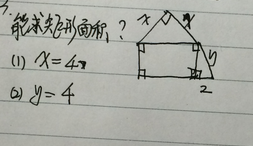 能求矩形面积?
(1) x=4
(2) y=4
x
x
y
2